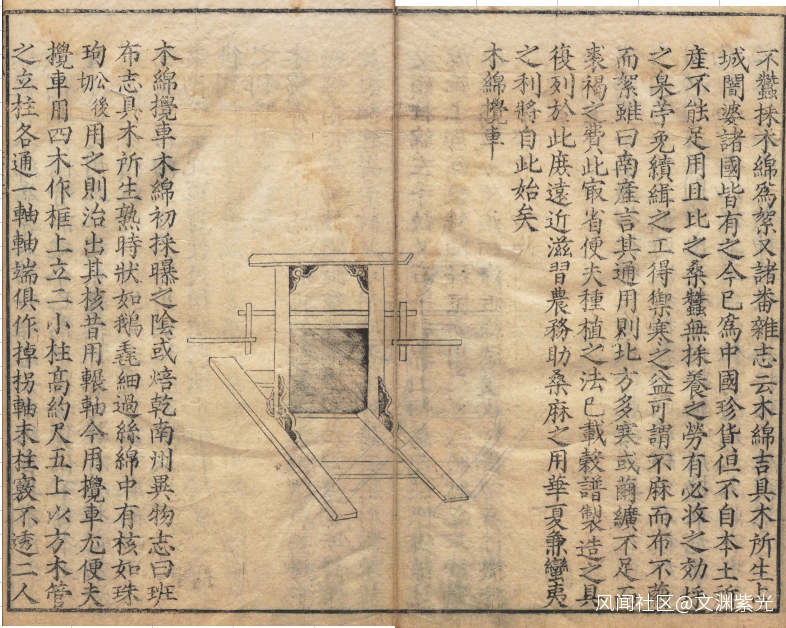 不蠶採木綿爲絮又諸番雜志云木綿吉貝木所生占
城闍婆諸國皆有之今已爲中國珍貨但不自本土所
產不能足用且比之桑蠶無採養之勞有必收之効埒
之枲苧免績緝之工得禦寒之益可謂不麻而布不
而絮雖曰南產言其通用則北方多寒或繭纊不足
裘褐之費此㝡省便夫種植之法已載穀譜製造之具
復列於此庶遠近滋習農務助桑麻之用華夏兼蠻夷
之利將自此始矣
木綿攪車
木綿攪車木綿初採曝之陰或焙乾南州異物志曰班
布志具木所生熟時狀如鵝毳細過絲綿中有核如珠
珣 後用之則治出其核昔用輾軸今用攪車尤便夫
攪車用四木作框上立二小柱高約尺五上以方木管
之立柱各通一軸軸端俱作掉拐軸末柱竅不透二人
风闻社区@文渊紫光